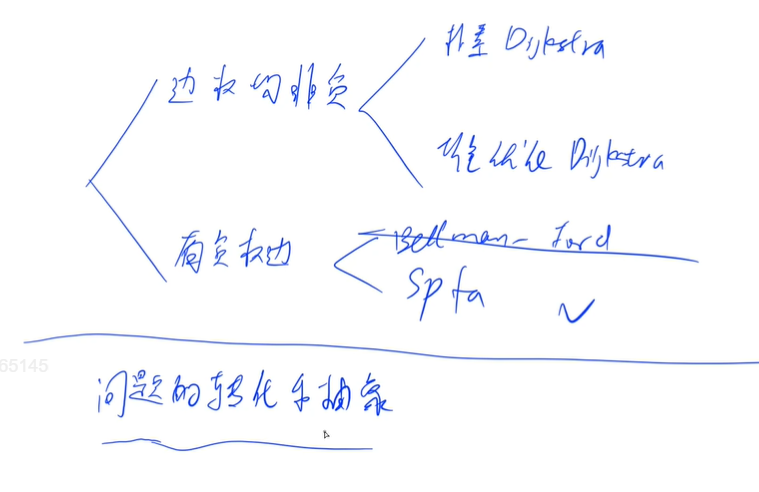 朴素 Dijkstra
边权均非负
堆优化 Dijkstra
Bellman-Ford
有负权边
Spfa
65145
问题的转化和抽象